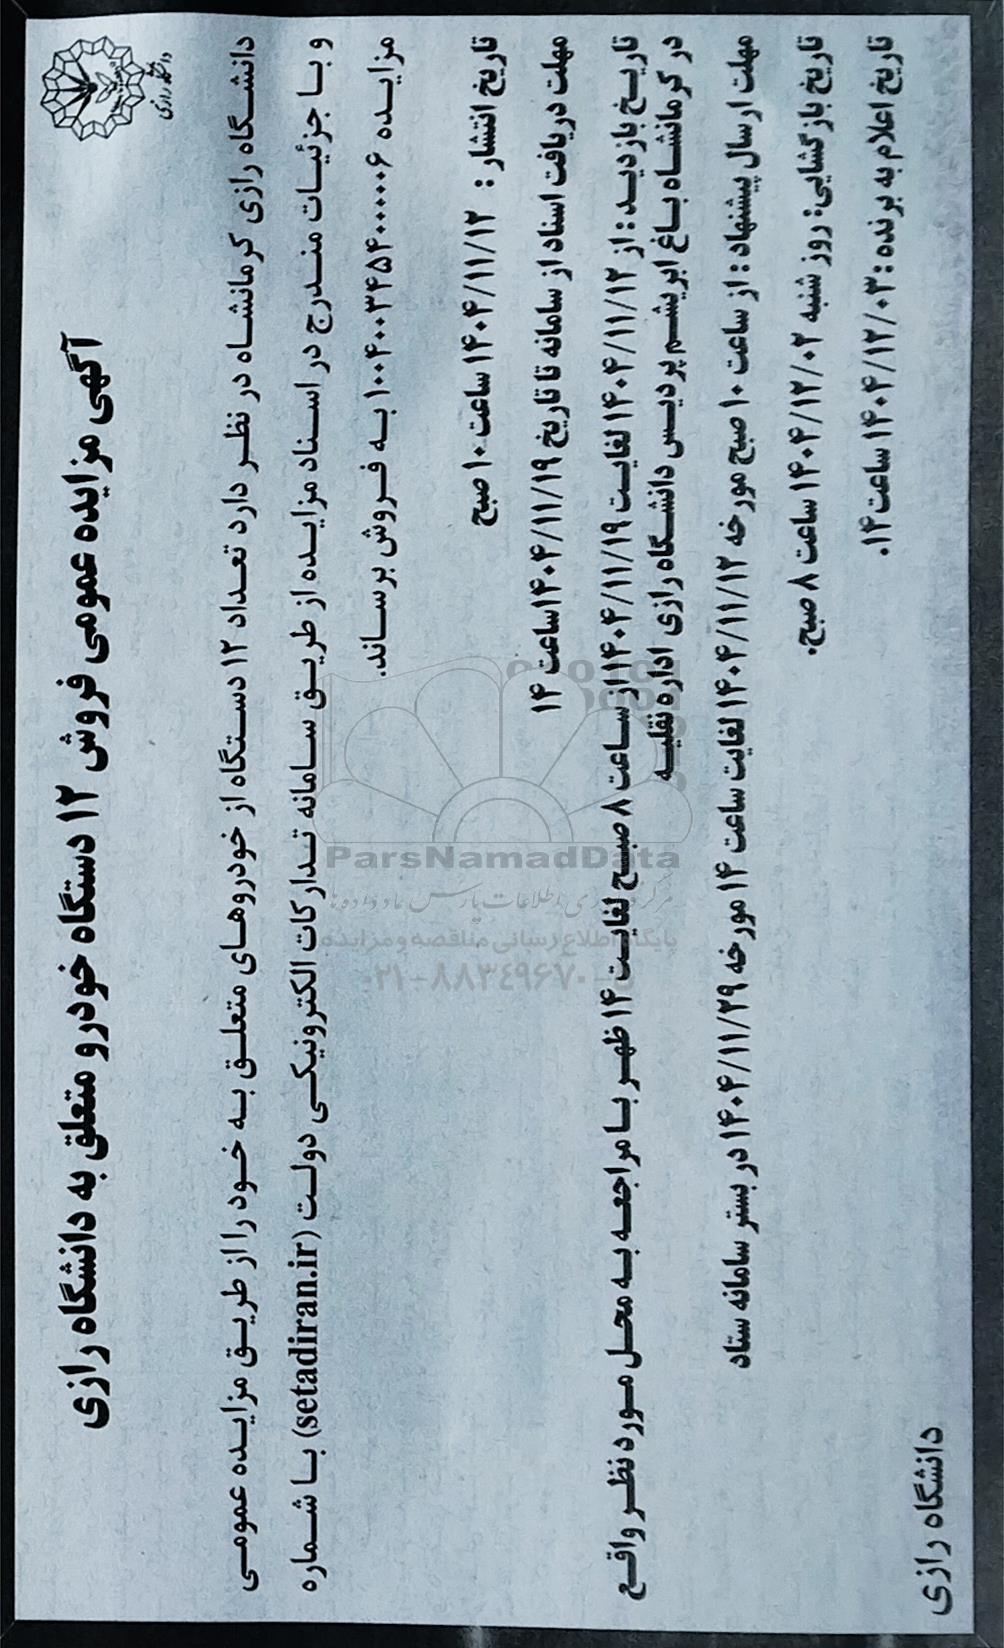 دانشگاه رازی
آگهی مزایده عمومی فروش ۱۲ دستگاه خودرو متعلق به دانشگاه رازی
دانشگاه رازی کرمانشاه در نظر دارد تعداد ۱۲ دستگاه از خودروهای متعلق به خود را از طریق مزایده عمومی
و با جزئیات مندرج در اسناد مزایده از طریق سامانه تدارکات الکترونیکی دولت (setadiran.ir) با شماره
مزایده ۱۰۰۴۰۰۳۴۵۴۰۰۰۰۰۶ به فروش برساند.
تاریخ انتشار : ۱۴۰۴/۱۱/۱۲ ساعت ۱۰ صبح
مهلت دریافت اسناد از سامانه تا تاریخ ۱۴۰۴/۱۱/۱۹ ساعت ۱۴
تاریخ بازدید : از ۱۴۰۴/۱۱/۱۲ لغایت ۱۴۰۴/۱۱/۱۹ از ساعت ۸ صبح لغایت ۱۴ ظهر با مراجعه به محل مورد نظر واقع
در کرمانشاه باغ ابریشم پردیس دانشگاه رازی اداره نقلیه
مهلت ارسال پیشنهاد : از ساعت ۱۰ صبح مورخه ۱۴۰۴/۱۱/۱۲ لغایت ساعت ۱۴ مورخه ۱۴۰۴/۱۱/۲۹ در بستر سامانه ستاد
تاریخ بازگشایی: روز شنبه ۱۴۰۴/۱۲/۰۲ ساعت ۸ صبح.
تاریخ اعلام به برنده : ۱۴۰۴/۱۲/۰۳ ساعت ۱۴.
دانشگاه رازی
ParsNamadData
پایگاه اطلاع رسانی مناقصه و مزایده
۰۲۱-۸۸۳۴۹۶۷۰-۵